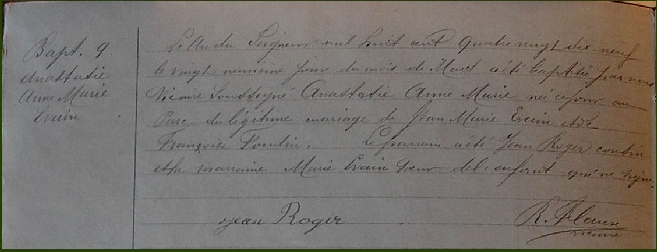 Bapt. 9.
Anastasie
Anne Marie
Evain
L'An du Seigneur mil huit cent quatre vingt dix-neuf
le vingt neuvième jour du mois de Mars a été baptisée par nous
Vicaire soussigné Anastasie Anne Marie née ce jour au
Parc du légitime mariage de Jean Marie Evain et de
Françoise Le parrain a été Jean Roger cousin
et la marraine Marie Evain Sœur de l'enfant qui ne signe.
Jean Roger
R.
vicaire